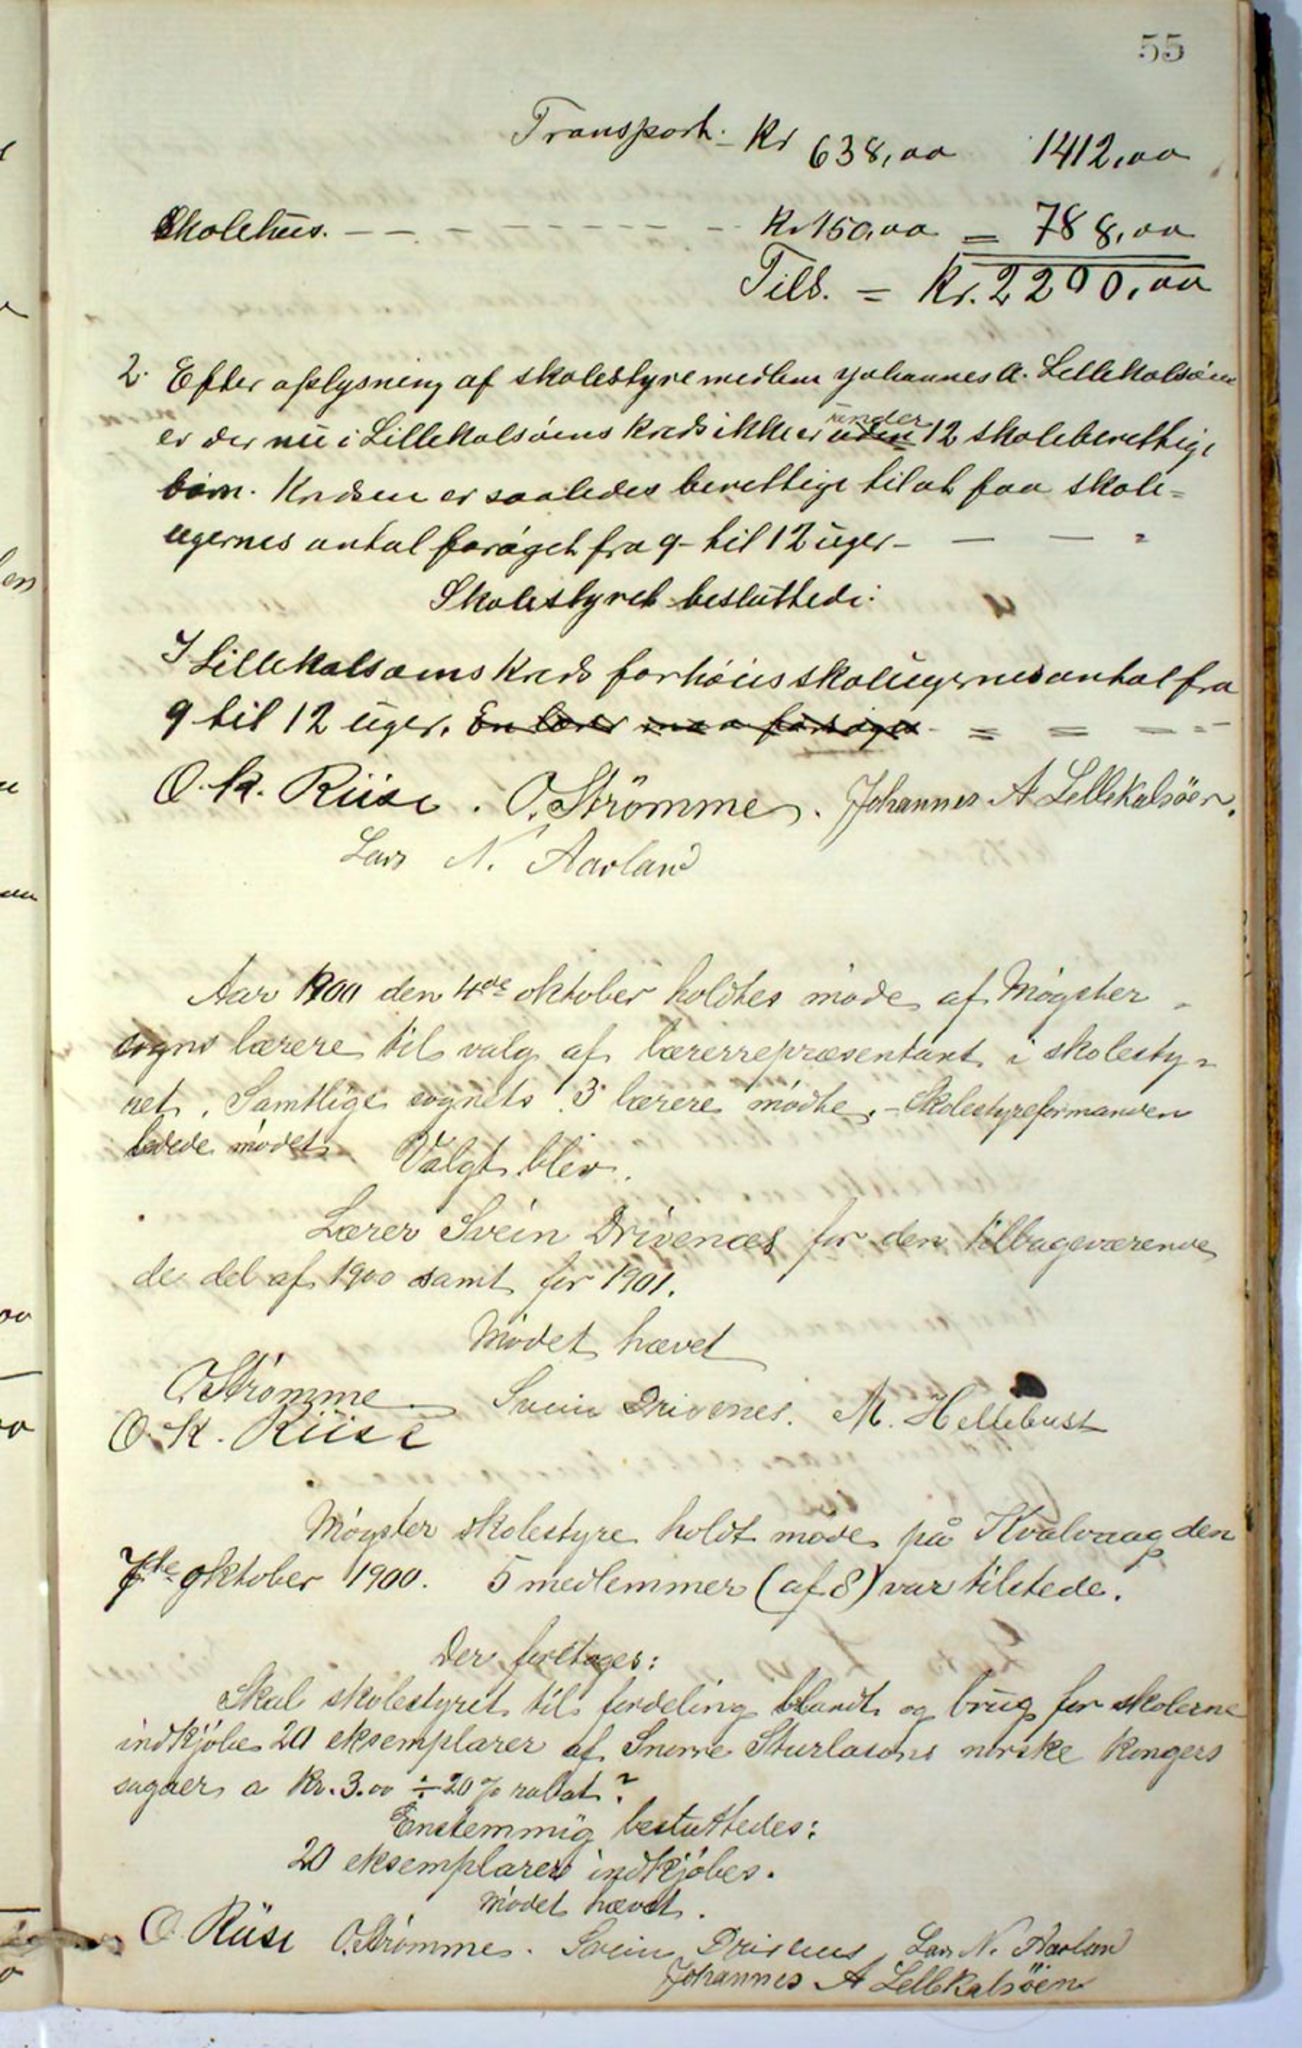 55
Transport. Kr 638,00 1412,00
Skolehus. — — — — — — — — Kr 150,00 = 788,00
Tils. = Kr. 2200,00
2. Efter oplysning af skolestyremedlem Johannes A. Lillekalsöen
er der nu i Lillekalsöens kreds ikke er uden under 12 skoleberettige
börn. Kredsen er saaledes berettige til at faa skole=
ugernes antal foröget fra 9 til 12 uger — — — "
Skolestyret besluttede:
I Lillekalsoens kreds forhöies skoleugernes antal fra
9 til 12 uger. En lærer maa forsöges = = — —
O. K. Riise. O. Strömme. Johannes A Lillekalsöen.
Lars N. Aarland
Aar 1900 den 4de oktober holdtes möde af Møgster
sogns lærere til valg af lærerrepræsentant i skolesty=
ret. Samtlige sognets 3 lærere mödte. – Skolestyreformanden
ledede mödet. Valgt blev:
Lærer Svein Drivenæs for den tilbageværende
de del af 1900 samt for 1901.
Mödet hævet
O Strömme Svein Drivenes. M. Hellebust
O. K. Riise
Møgster skolestyre holdt möde på Kvalvaag den
7de oktober 1900. 5 medlemmer (af 8) var tilstede.
Der foretoges:
Skal skolestyret til fordeling blandt og brug for skolerne
indkjöbe 20 eksemplarer af Snorre Sturlasons norske kongers
sagaer a kr. 3.00 ÷ 20% rabat?
Enstemmig besluttedes:
20 eksemplarer indkjöbes.
Mödet hævet.
O. Riise O. Strömme. Svein Drivenes, Lars N. Aarland
Johannes A Lillekalsöen